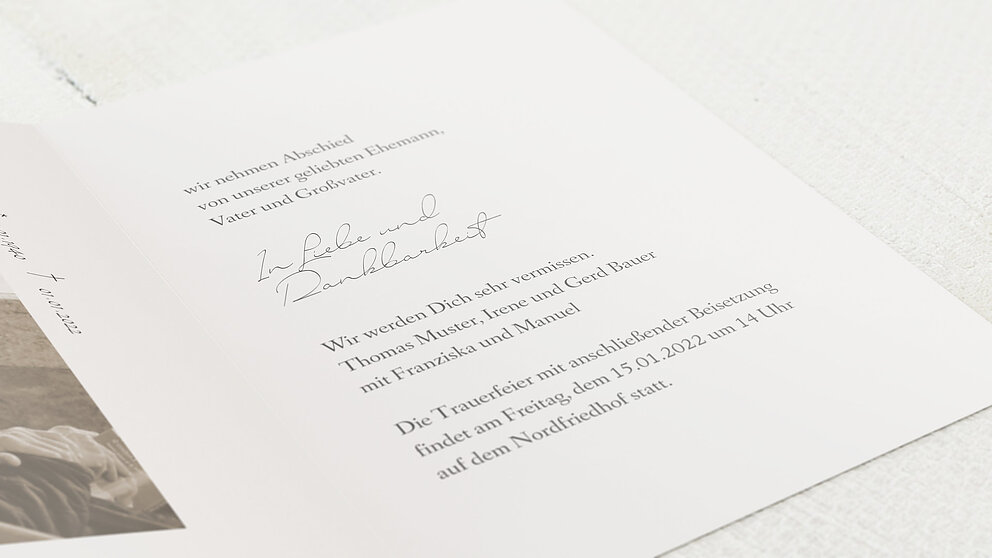 † 01.01.2022
wir nehmen Abschied
von unserer geliebten Ehemann,
Vater und Großvater.
In Liebe und
Dankbarkeit
Wir werden Dich sehr vermissen.
Thomas Muster, Irene und Gerd Bauer
mit Franziska und Manuel
Die Trauerfeier mit anschließender Beisetzung
findet am Freitag, dem 15.01.2022 um 14 Uhr
auf dem Nordfriedhof statt.